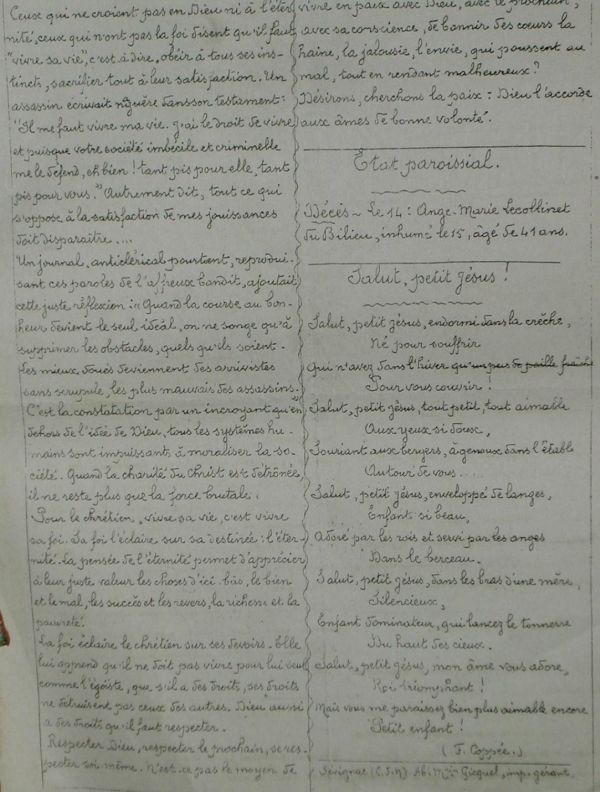 Ceux qui ne croient pas en Dieu ni à l'éter-
nité, ceux qui n'ont pas la foi disent qu'il faut
"vivre sa vie", c'est à dire, obéir à tous ses ins-
tincts, sacrifier tout à leur satisfaction. Un
assassin écrivait naguère dans son testament:
"Il me faut vivre ma vie. J'ai le droit de vivre
et puisque votre société imbécile et criminelle
me le défend, eh bien! tant pis pour elle, tant
pis pour vous." Autrement dit, tout ce qui
s'oppose à la satisfaction de mes jouissances
doit disparaître....
Un journal, anticlérical pourtant, reprodui-
sant ces paroles de l'affreux bandit, ajoutait
cette juste réflexion: "Quand la course au bon-
heur devient le seul idéal, on ne songe qu'à
supprimer les obstacles, quels qu'ils soient.
Les mieux doués deviennent des arrivistes
sans scrupule, les plus mauvais des assassins."
C'est la constatation par un incroyant qu'en
dehors de l'idée de Dieu, tous les systèmes hu-
mains sont impuissants à moraliser la so-
ciété. Quand la charité du Christ est détrônée,
il ne reste plus que la force brutale.
Pour le chrétien, vivre sa vie, c'est vivre
sa foi. La foi l'éclaire sur sa destinée: l'éter-
nité. La pensée de l'éternité permet d'apprécier
à leur juste valeur les choses d'ici-bas, le bien
et le mal, les succès et les revers, la richesse et la
pauvreté.
La foi éclaire le chrétien sur ses devoirs. Elle
lui apprend qu'il ne doit pas vivre pour lui seul
comme l'égoïste, que s'il a des droits, ses droits
ne détruisent pas ceux des autres. Dieu aussi
a des droits qu'il faut respecter.
Respecter Dieu, respecter le prochain, se res-
pecter soi-même. N'est-ce pas le moyen de
vivre en paix avec Dieu, avec le prochain,
avec sa conscience, de bannir des cœurs la
haine, la jalousie, l'envie, qui poussent au
mal, tout en rendant malheureux?
Désirons, cherchons la paix: Dieu l'accorde
aux âmes de bonne volonté.
État paroissial.
Décès ~ Le 14: Ange-Marie Lecothinet
du Bilieu, inhumé le 15, âgé de 41 ans.
Salut, petit Jésus!
Salut, petit Jésus, endormi dans la crèche,
Né pour souffrir
Qui n'avez dans l'hiver qu'un peu de paille fraîche
Pour vous couvrir!
Salut, petit Jésus, tout petit, tout aimable
Aux yeux si doux,
Souriant aux bergers, à genoux dans l'étable
Autour de vous.....
Salut, petit Jésus, enveloppé de langes,
Enfant si beau,
Adoré par les rois et servi par les anges
Dans le berceau.
Salut, petit Jésus, dans les bras d'une mère,
Silencieux,
Enfant dominateur, qui lancez le tonnerre
Du haut des cieux.
Salut, petit Jésus, mon âme vous adore,
Roi triomphant!
Mais vous me paraissez bien plus aimable encore
Petit enfant!
(F. Coppée.)
Sévignac (C.d.N) Ab. Gicquel, imp. gérant.